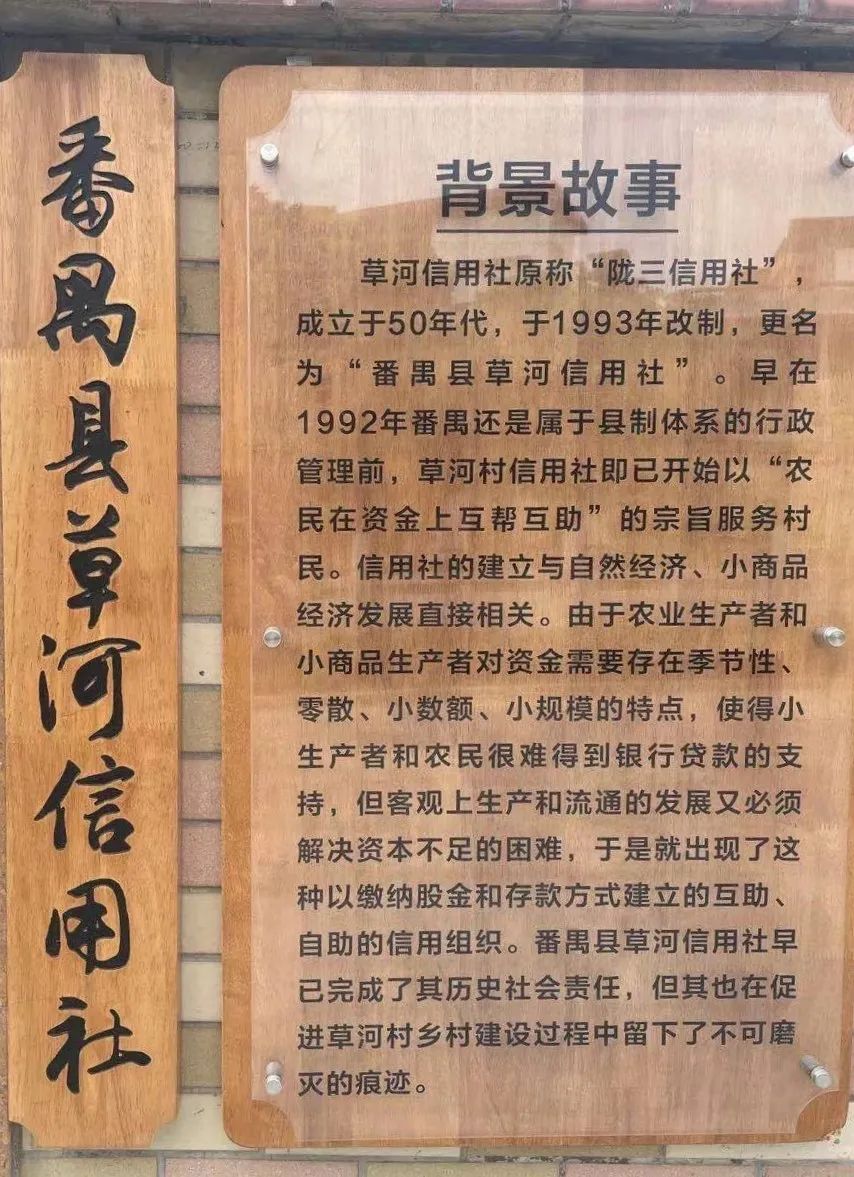 番禺县草河信用社
背景故事
草河信用社原称“陇三信用社”，
成立于50年代，于1993年改制，更名
为“番禺县草河信用社”。早在
1992年番禺还是属于县制体系的行政
管理前，草河村信用社即已开始以“农
民在资金上互帮互助”的宗旨服务村
民。信用社的建立与自然经济、小商品
经济发展直接相关。由于农业生产者和
小商品生产者对资金需要存在季节性、
零散、小数额、小规模的特点，使得小
生产者和农民很难得到银行贷款的支
持，但客观上生产和流通的发展又必须
解决资本不足的困难，于是就出现了这
种以缴纳股金和存款方式建立的互助、
自助的信用组织。番禺县草河信用社早
已完成了其历史社会责任，但其也在促
进草河村乡村建设过程中留下了不可磨
灭的痕迹。